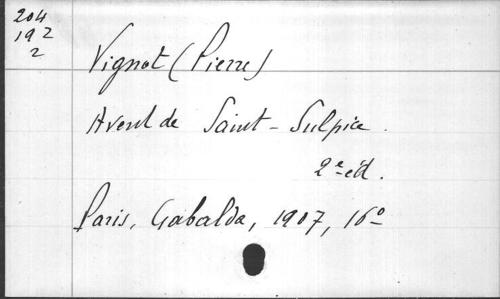 204
192
2
Vignot (Pierre)
Avent de Saint-Sulpice.
2e éd.
Paris, Gabalda, 1907, 16°